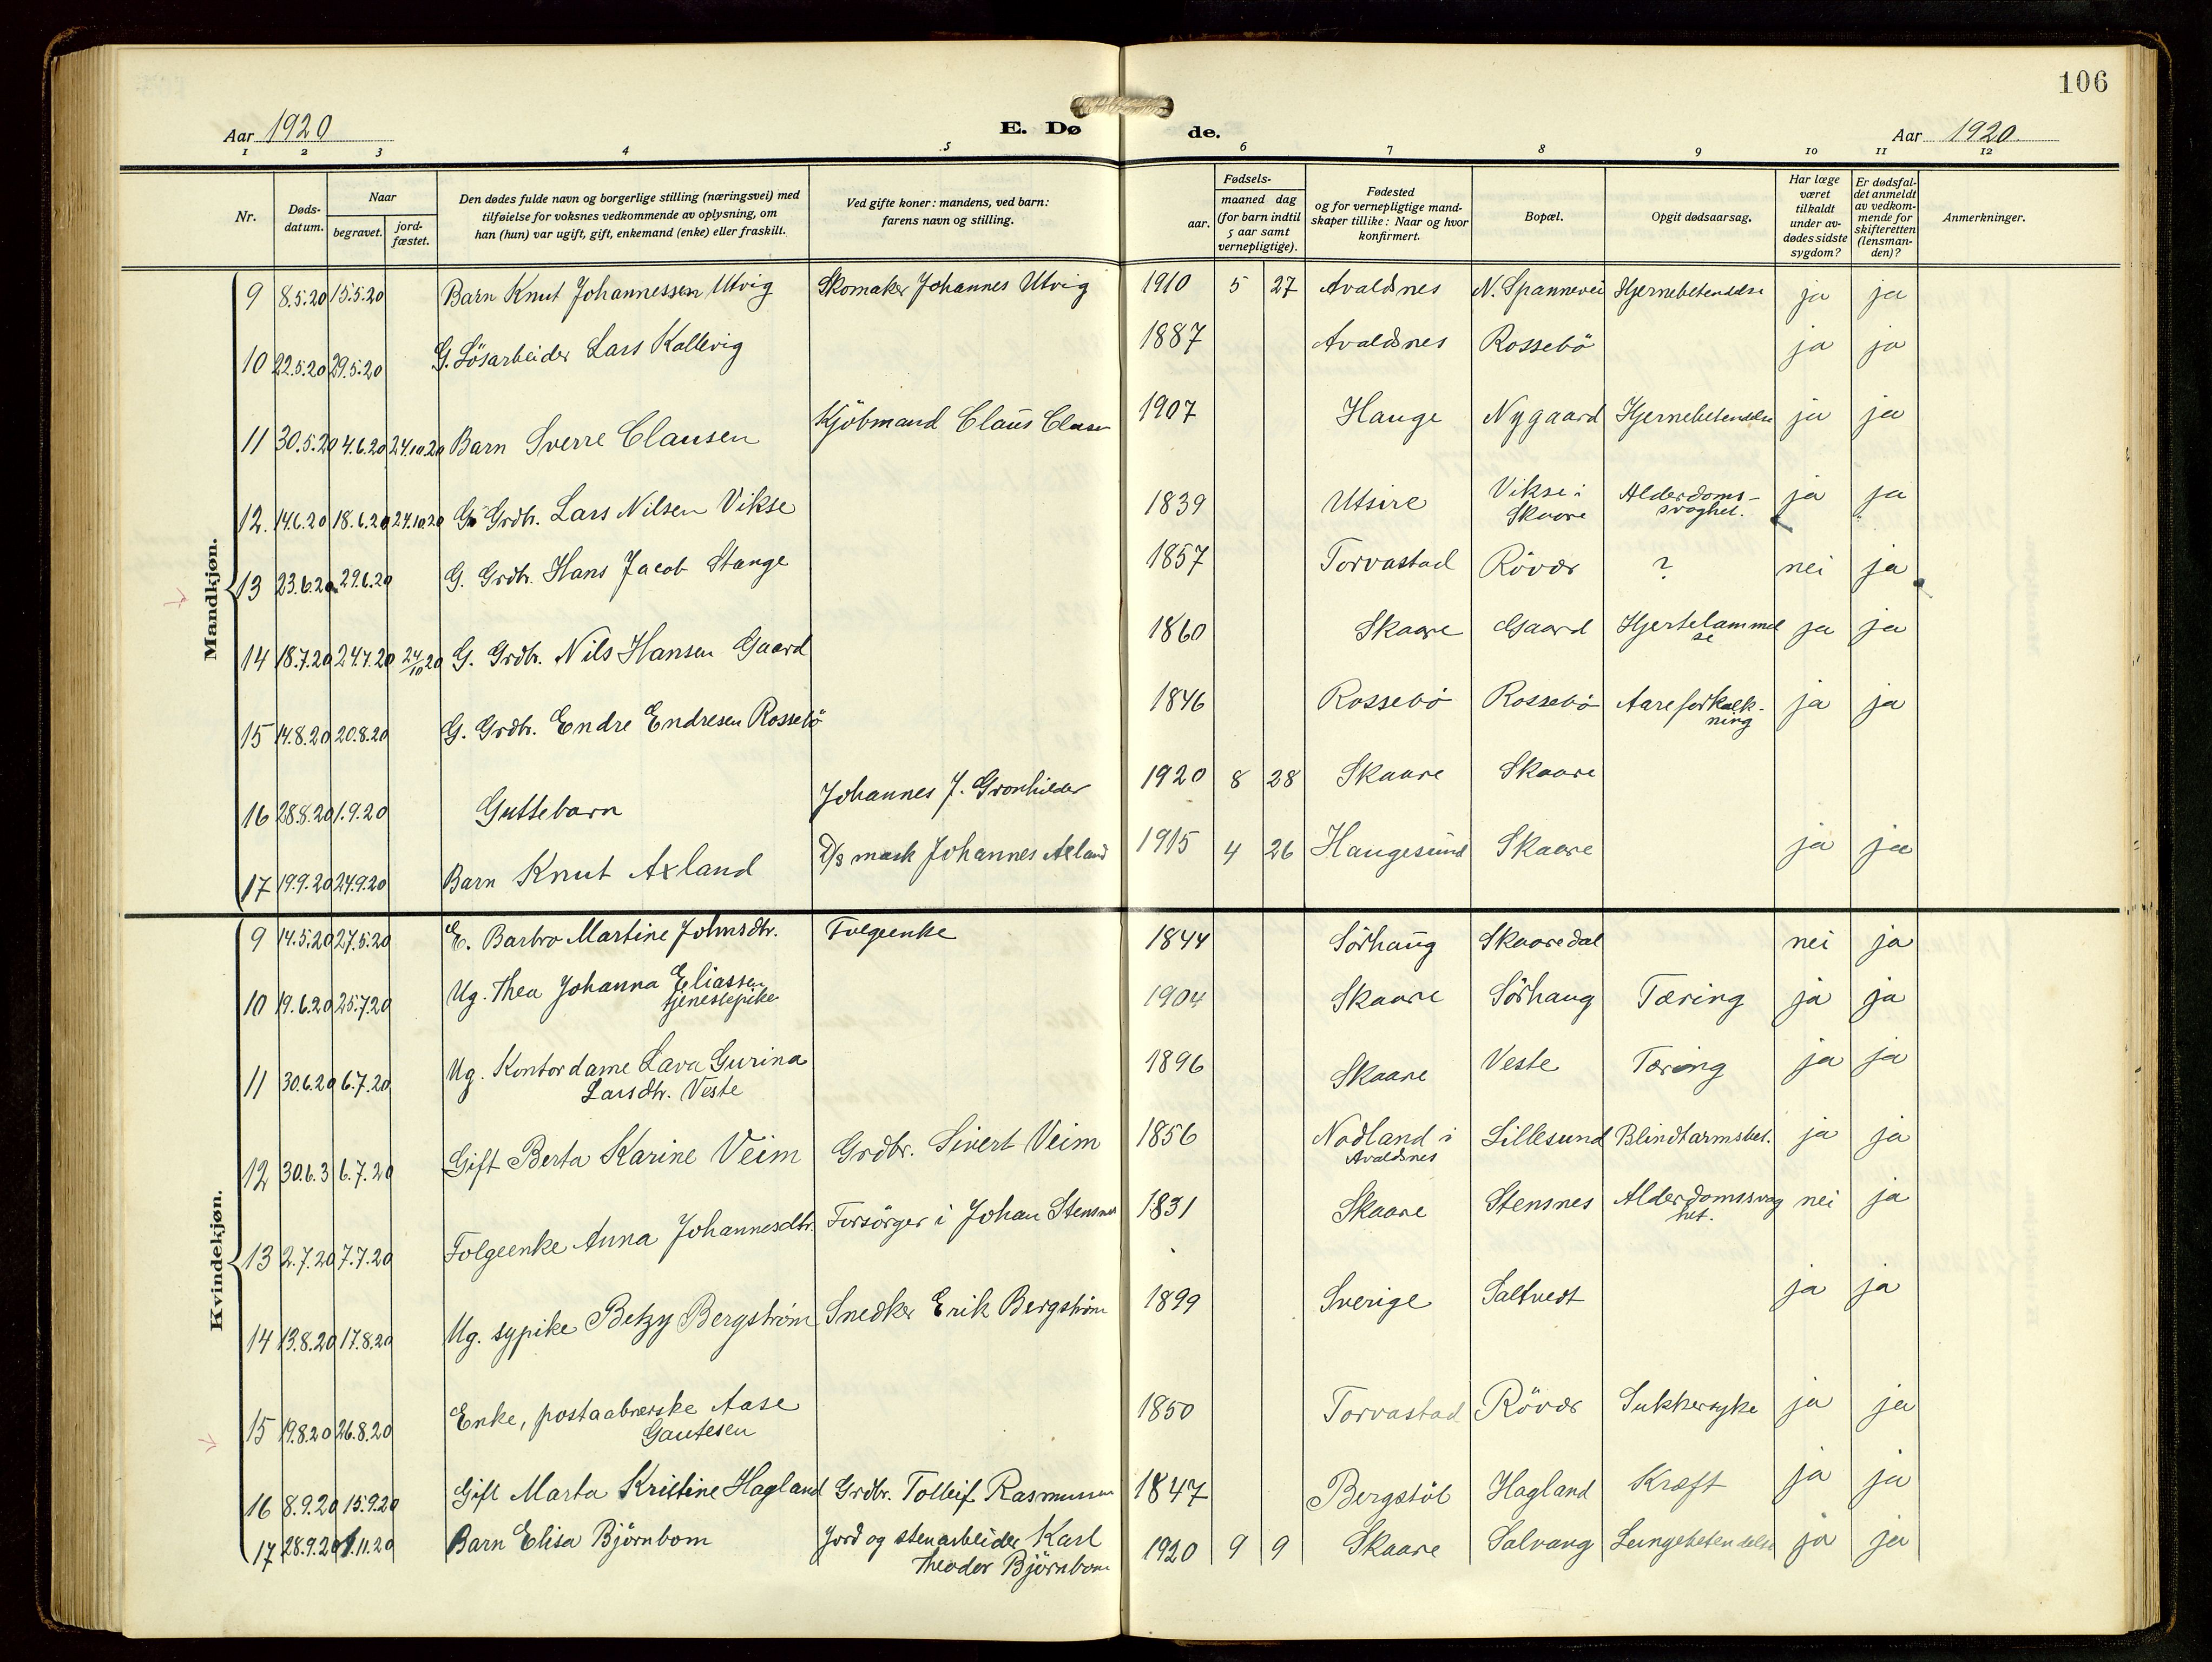 106
Aar 1920
E. Dø de.
Aar 1920.
1 2 3 4 5 6 7 8 9 10 11 12
Nr.
Døds-
datum.
Naar
begravet.
jord-
fæstet.
Den dødes fulde navn og borgerlige stilling (næringsvei) med
tilføielse for voksnes vedkommende av oplysning, om
han (hun) var ugift, gift, enkemand (enke) eller fraskilt.
Ved gifte koner: mandens, ved barn:
farens navn og stilling.
Fødsels-
aar.
maaned dag
(for barn indtil
5 aar samt
vernepligtige).
Fødested
og for vernepligtige mand-
skaper tillike: Naar og hvor
konfirmert.
Bopæl.
Opgit dødsaarsag.
Har læge
været
tilkaldt
under av-
dødes sidste
sygdom?
Er dødsfal-
det anmeldt
av vedkom-
mende for
skifteretten
(lensman-
den)?
Anmerkninger.
Mandkjøn.
9 8.5.20 15.5.20 Barn Knut Johannessen Utvig Skomaker Johannes Utvig 1910 5 27 Avaldsnes N. Spannevei Hjernebetendelse ja ja
10 22.5.20 29.5.20 G. Lösarbeider Lars Kallevig 1887 Avaldsnes Rossebö ja ja
11 30.5.20 4.6.20 24.10.20 Barn Sverre Clausen Kjöbmand Claus Clausen 1907 Hauge Nygaard Hjernebetendelse ja ja
12. 14.6.20 18.6.20 24.10.20 G. Grdbr. Lars Nilsen Vikse 1839 Utsire Vikse i
Skaare Alderdoms-
svaghet. ja ja
13 23.6.20 29.6.20 G. Grdbr. Hans Jacob Stange 1857 Torvastad Rövær ? nei ja
14 18.7.20 24.7.20 24/10 20 G. Grdbr. Nils Hansen Gaard 1860 Skaare Gaard Hjertelammel
se ja ja
15 14.8.20 20.8.20 G. Grdbr. Endre Endresen Rossebö 1846 Rossebö Rossebö Aareforkalk-
ning ja ja
16 28.8.20 1.9.20 Guttebarn Johannes J. Gronhilder 1920 8 28 Skaare Skaare
17 19.9.20 24.9.20 Barn Knut Axland D/s mask Johannes Axland 1915 4 26 Haugesund Skaare ja ja
Kvindekjøn.
9 14.5.20 27.5.20 E. Barbro Martine Johnsdtr. Folgeenke 1844 Sörhaug Skaaredal nei ja
10 19.6.20 25.7.20 Ug. Thea Johanna Eliassen
tjenestepike 1904 Skaare Sörhaug Tæring ja ja
11 30.6.20 6.7.20 Ug. Kontordame Lava Gurina
Larsdtr. Veste 1896 Skaare Veste Tæring ja ja
12 30.6.3 6.7.20 Gift Berta Karine Veim Grdbr. Sivert Veim 1856 Nodland i
Avaldsnes Lillesund Blindtarmsbet. ja ja
13 2.7.20 7.7.20 Folgeenke Anna Johannesdtr. Forsörger i Johan Stensnes 1831 Skaare Stensnes Alderdomssvag
het. nei ja
14 13.8.20 17.8.20 Ug. sypike Betzy Bergström Snedker Erik Bergström 1899 Sverige Saltvedt ja ja
15 19.8.20 26.8.20 Enke, postaabnerske Aase
Gautesen 1850 Torvastad Rövær Sukkersyke ja ja
16 8.9.20 15.9.20 Gift Marta Kristine Hagland Grdbr. Tolleif Rasmussen 1847 Bergstöl Hagland Kræft ja ja
17 28.9.20 1.11.20 Barn Elisa Björnbom Jord og stenarbeider Karl
Theodor Björnbom 1920 9 9 Skaare Salvang Lungebetendelse ja ja